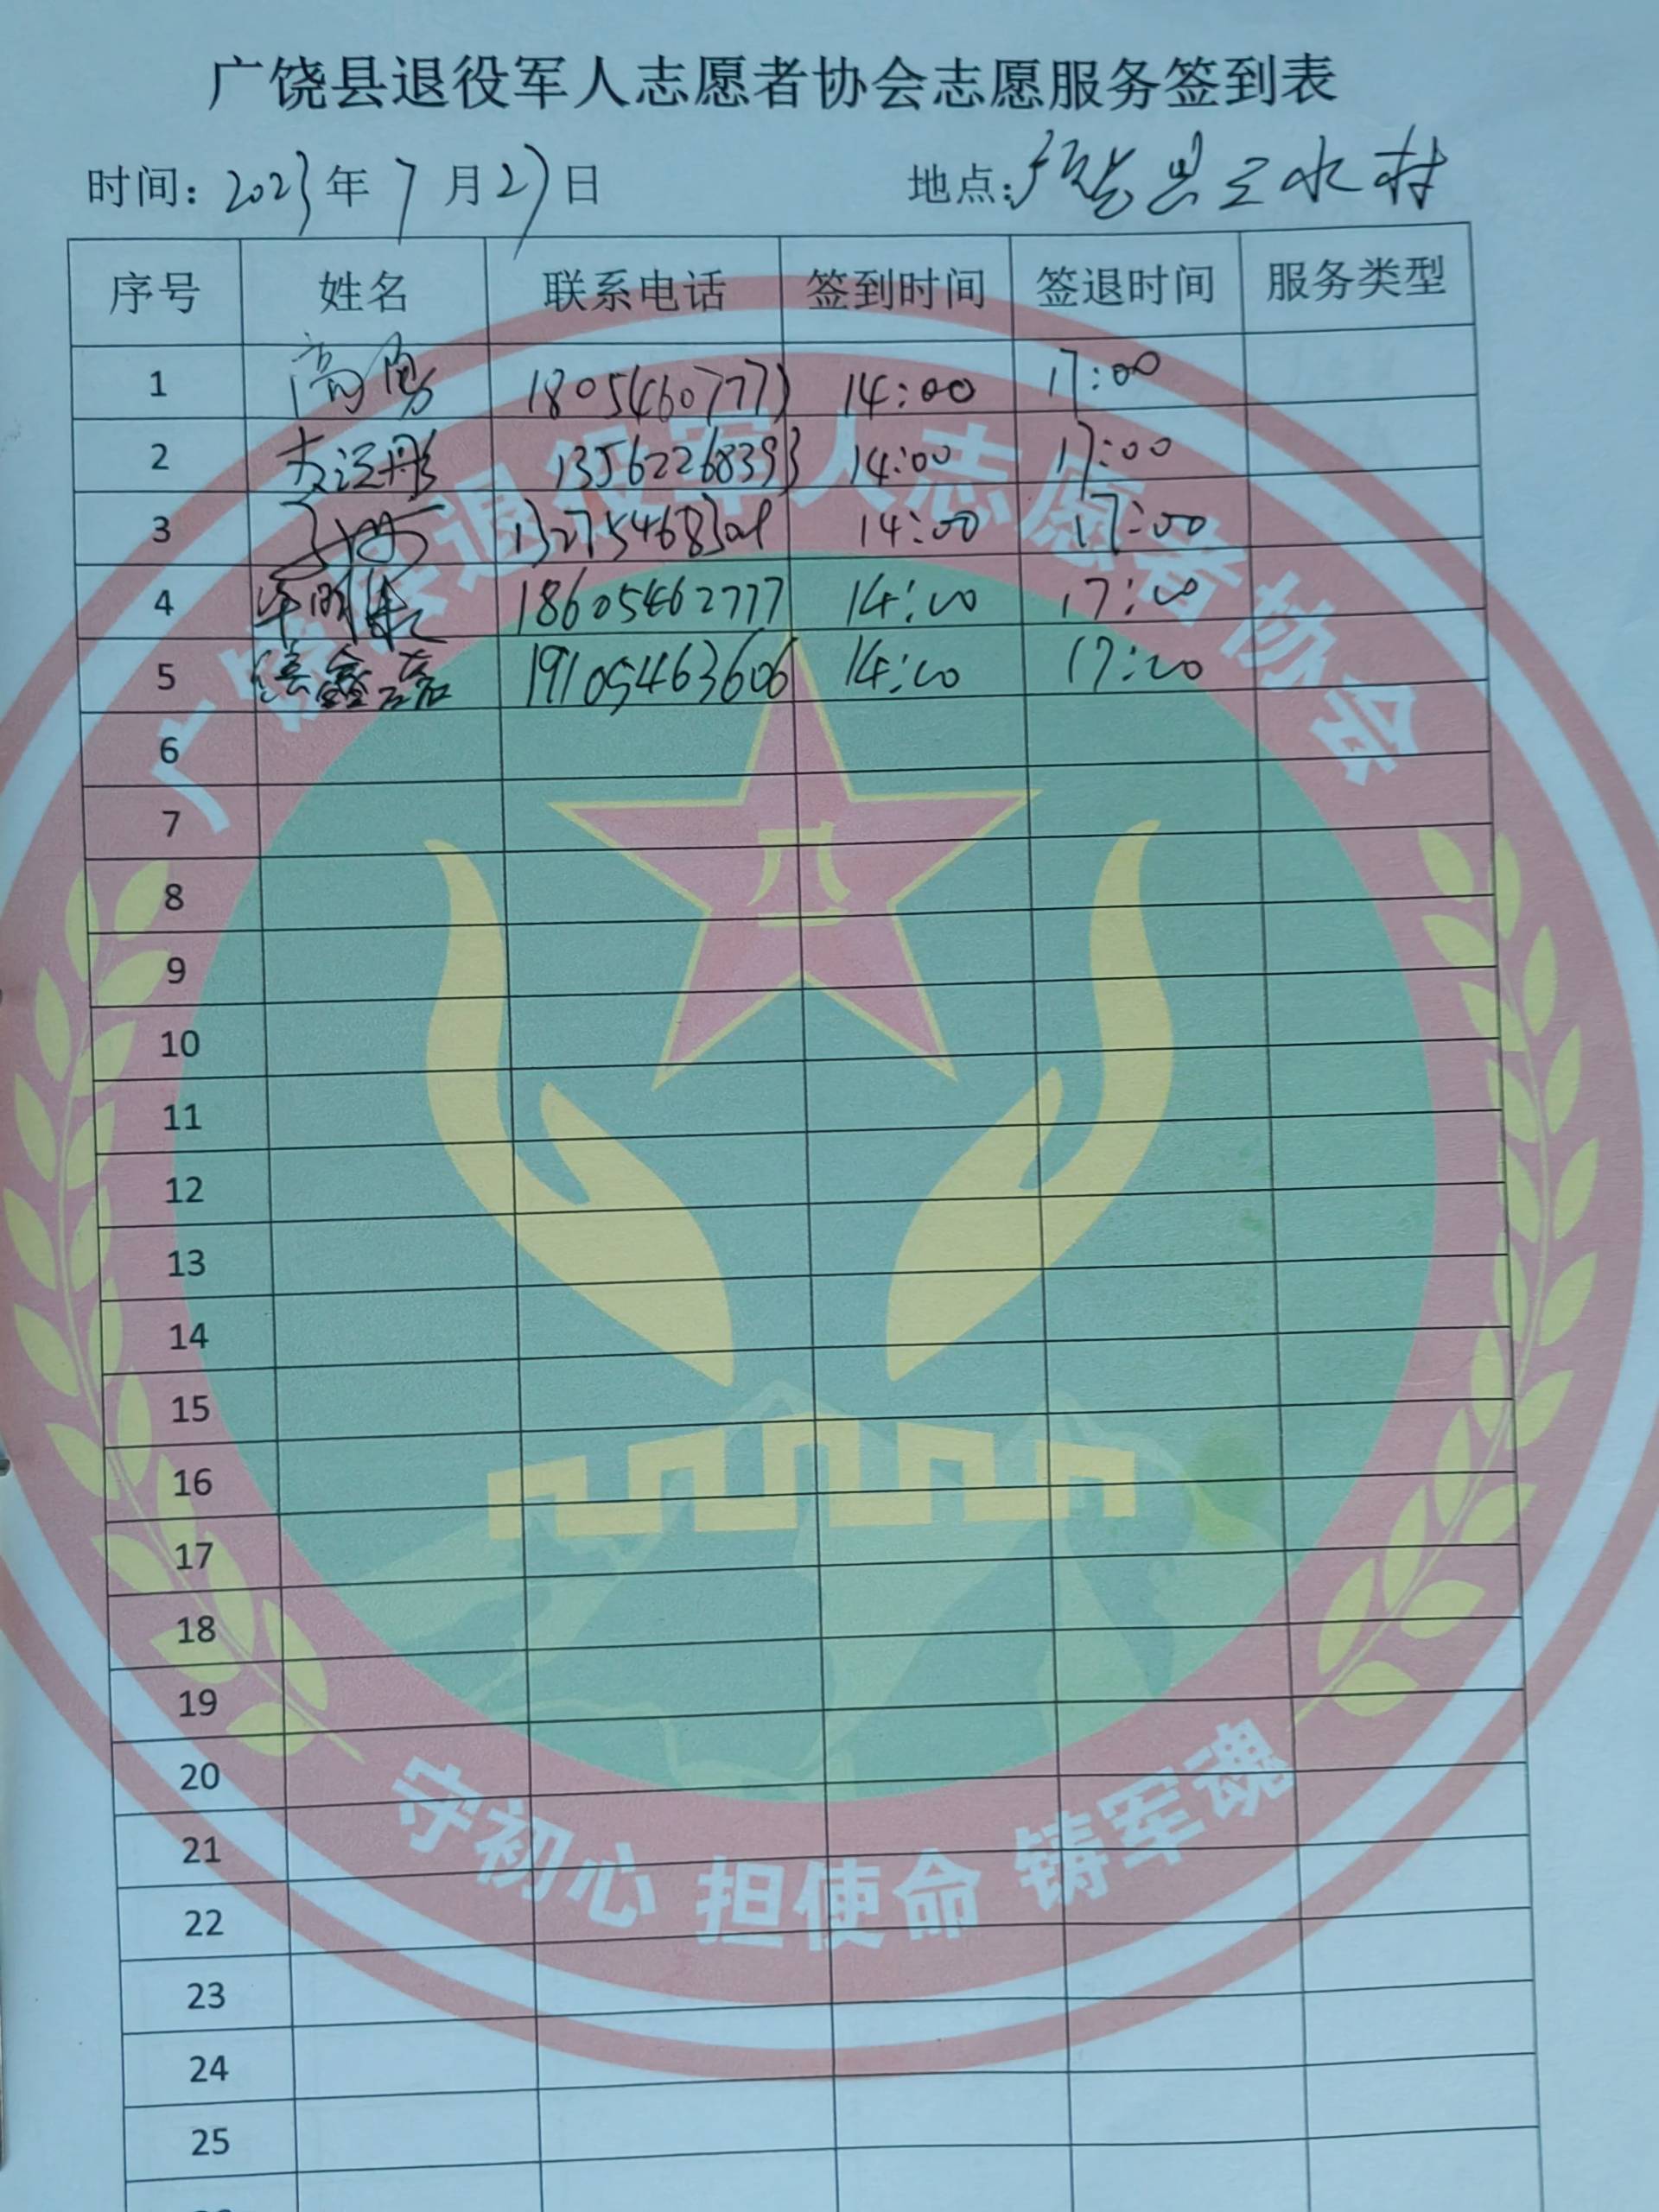 广饶县退役军人志愿者协会志愿服务签到表
时间: 2023年7月27日 地点: 村
序号 姓名 联系电话 签到时间 签退时间 服务类型
1 高勇 18054607777 14:00 17:00
2 13562268393 14:00 17:00
3 14:00 17:00
4 18605462777 14:00 17:00
5 鑫磊 19105463606 14:00 17:00
6
7
8
9
10
11
12
13
14
15
16
17
18
19
20
21
22
23
24
25
广饶县退役军人志愿者协会
八一
守初心 担使命 铸军魂